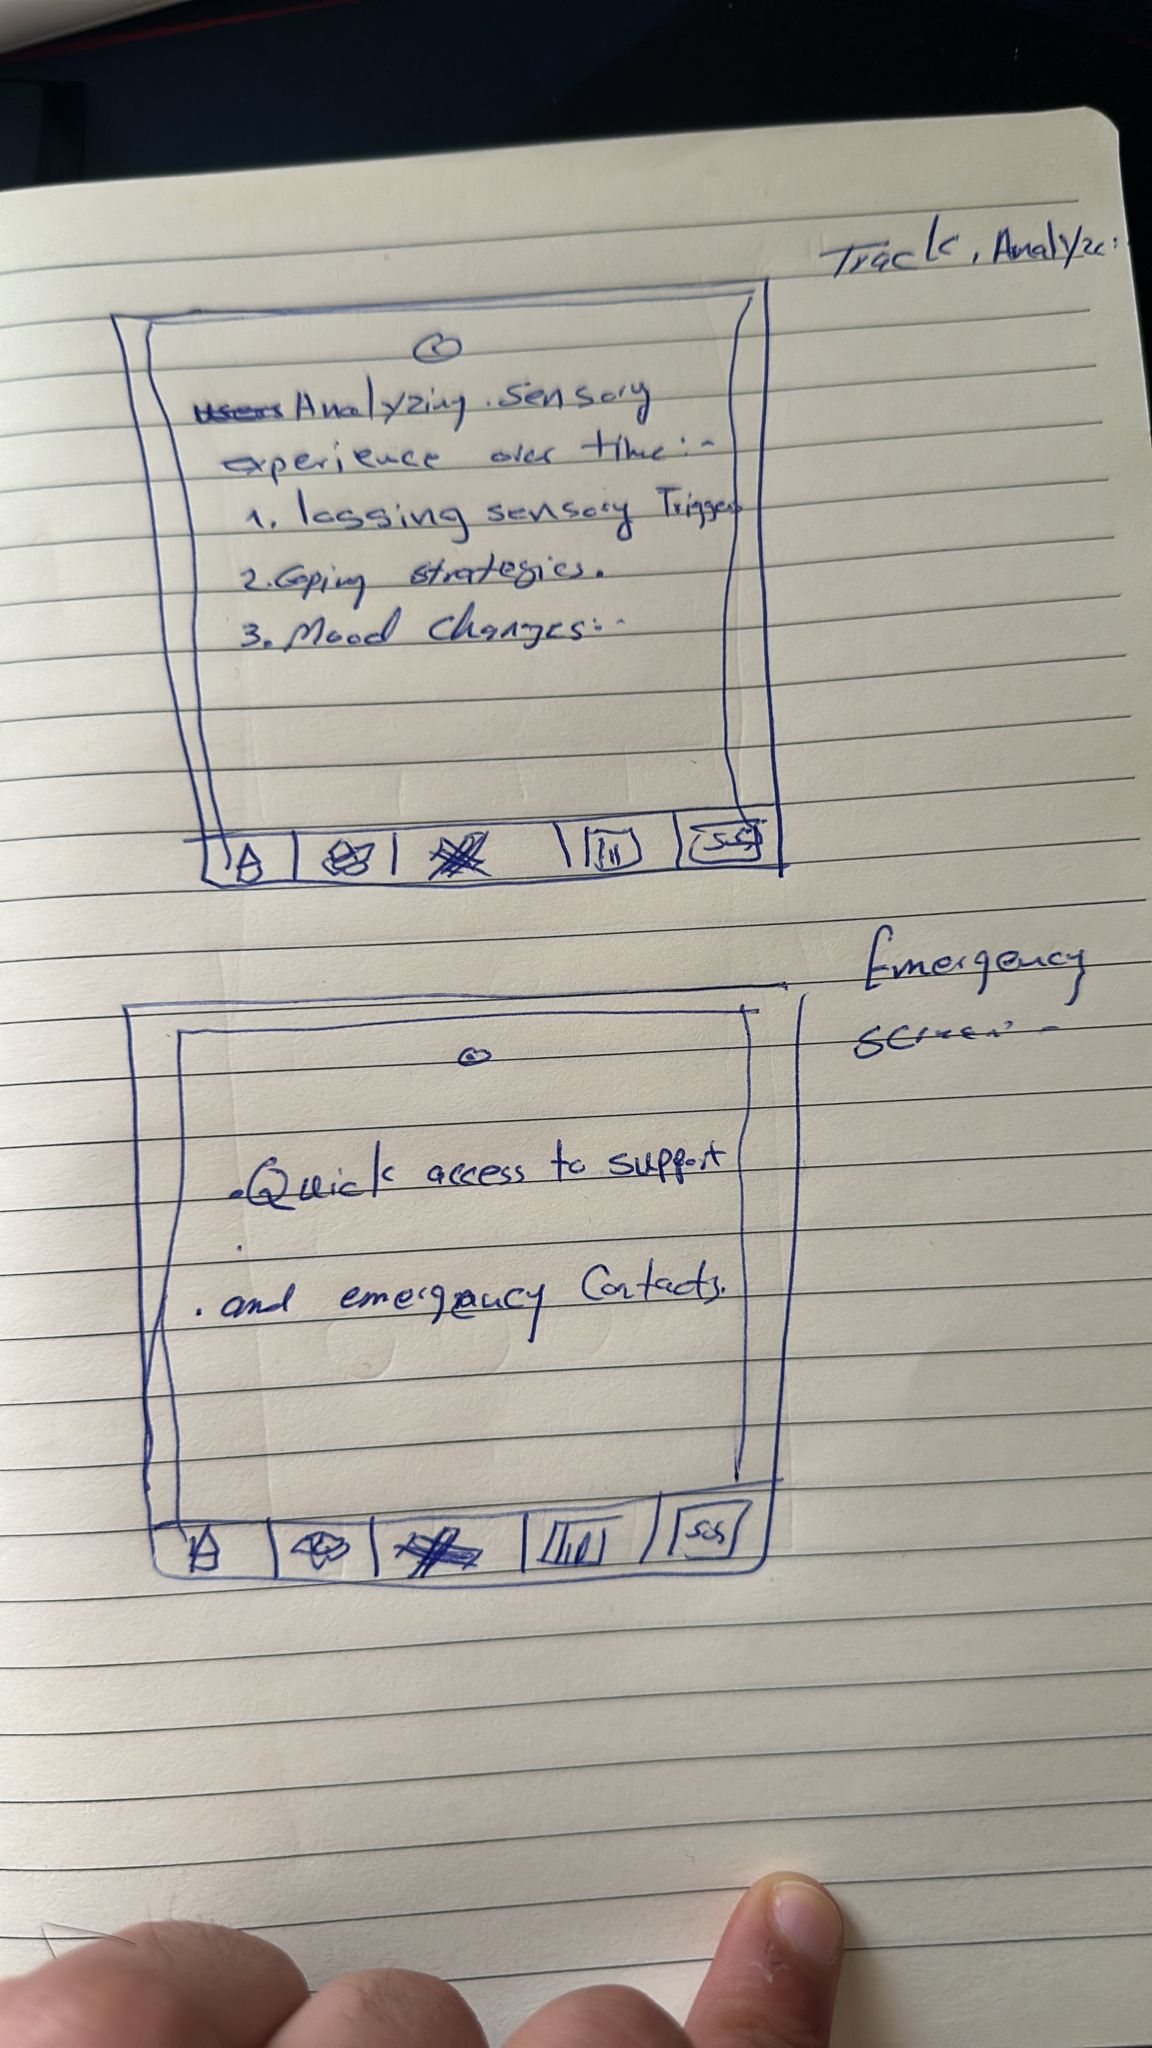 Track, Analyze:
Users Analyzing sensory
experience over time:-
1. lossing sensory Trigger
2. Coping strategies.
3. Mood Changes:-
SOS
Emergency
screen -
. Quick access to support
. and emergency Contacts.
SOS